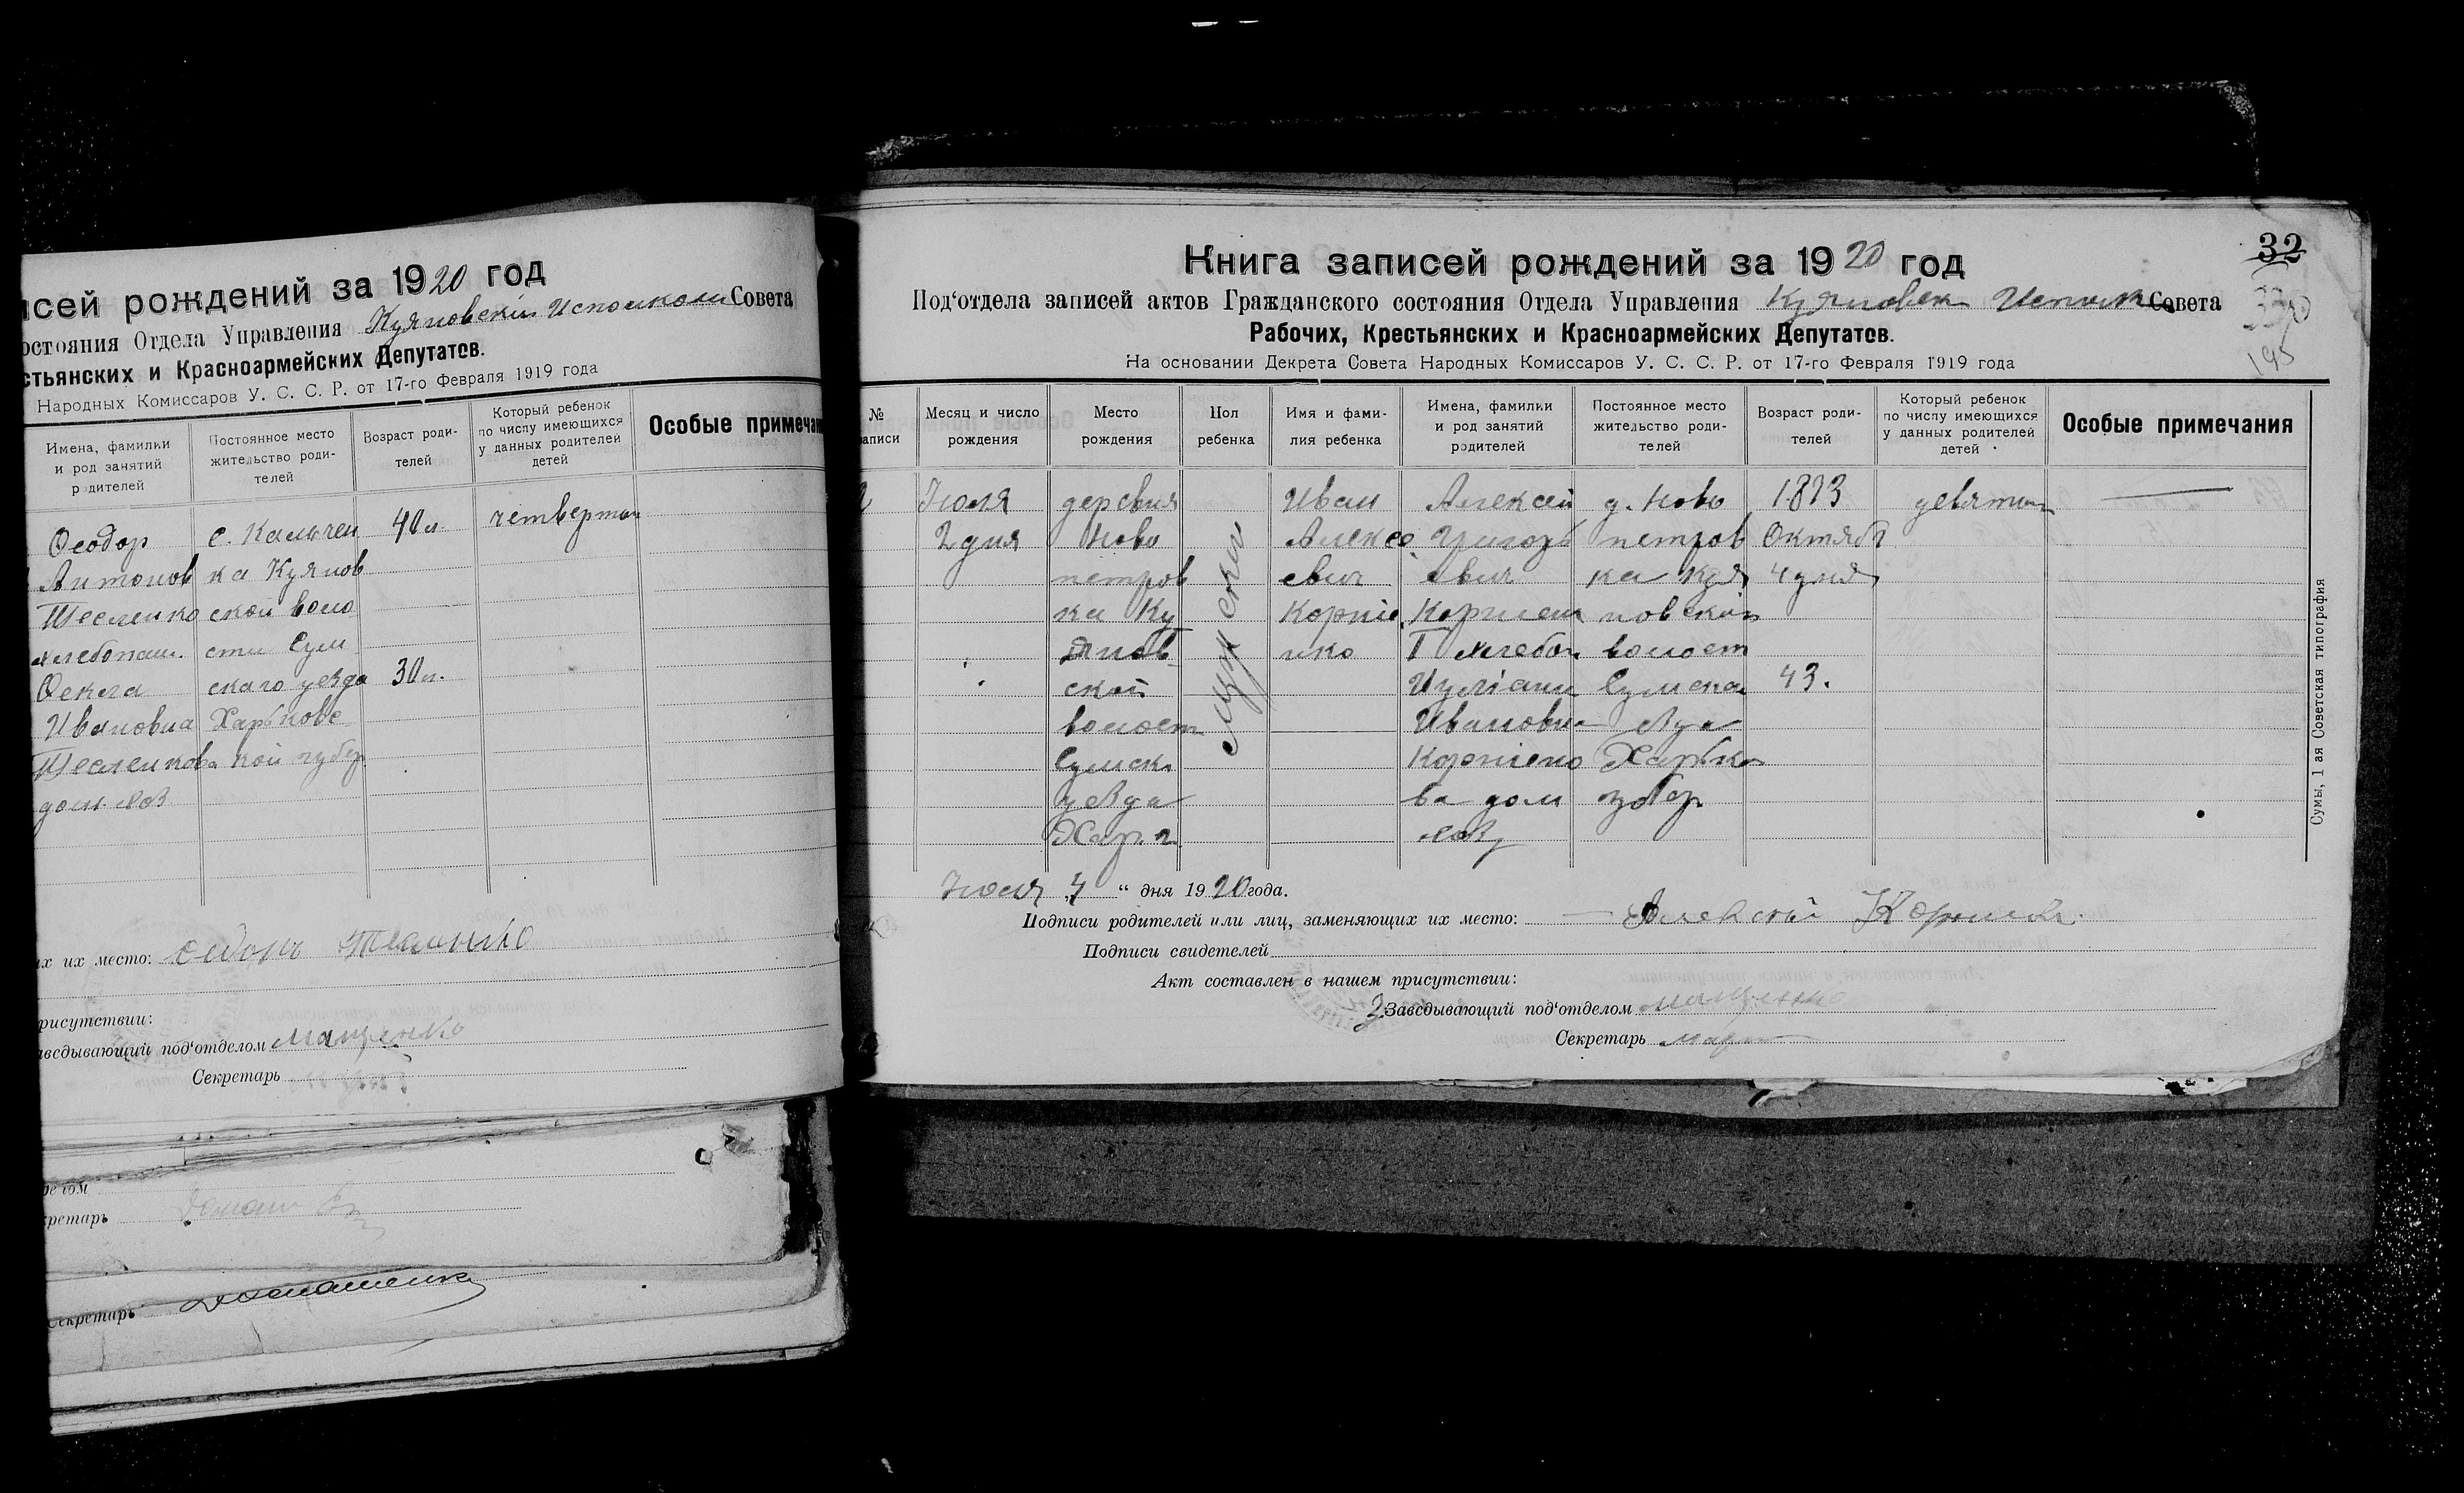 исей рождений за 1920 год
остояния Отдела Управления Куяновскій Исполком Совета
стьянских и Красноармейских Депутатов.
Народных Комиссаров У. С. С. Р. от 17-го Февраля 1919 года
Имена, фамилии и род занятий родителей
Постоянное место жительство родителей
Возраст родителей
Который ребенок по числу имеющихся у данных родителей детей
Особые примечан
Ѳеодор
Антонов
Тесленко
хлебопаш.
Ѳекла
Ивановна
Тесленкова
дом. хоз.
с. Кальчен
ка Куянов
ской воло
сти Сум
скаго уезда
Харьковс
кой губер
40 л.
30 л.
четвертый
их их место: Тесленко
присутствии:
аведывающий под‘отделом Мащенко
Секретарь
Секретарь
Секретарь Домашенко
Книга записей рождений за 1920 год
32
195
Под‘отдела записей актов Гражданского состояния Отдела Управления Куяновск Исполк Совета
Рабочих, Крестьянских и Красноармейских Депутатов.
На основании Декрета Совета Народных Комиссаров У. С. С. Р. от 17-го Февраля 1919 года
№ записи
Месяц и число рождения
Место рождения
Пол ребенка
Имя и фамилия ребенка
Имена, фамилии и род занятий родителей
Постоянное место жительство родителей
Возраст родителей
Который ребенок по числу имеющихся у данных родителей детей
Особые примечания
Июля
2 дня
деревня
Ново
петров
ка Ку
янов
ской
волост
Сумск
уезда
Хар. г.
мужской
Иван
Алексе
евич
Корніе
нко
Алексей
Григорь
евич
Корниен
хлебоп
Ивановна
Корніено
ва дом
хоз
д. Ново
петров
ка Куя
новской
волост
Сумска
езда
Харьков
губер
1873
Октябр
4 дня
43.
девятый
Июля 4 “ дня 1920 года.
Подписи родителей или лиц, заменяющих их место: Алексей Корниен
Подписи свидетелей
Акт составлен в нашем присутствии:
Заведывающий под‘отделом Мащенко
Секретарь
Сумы, 1 ая Советская типография